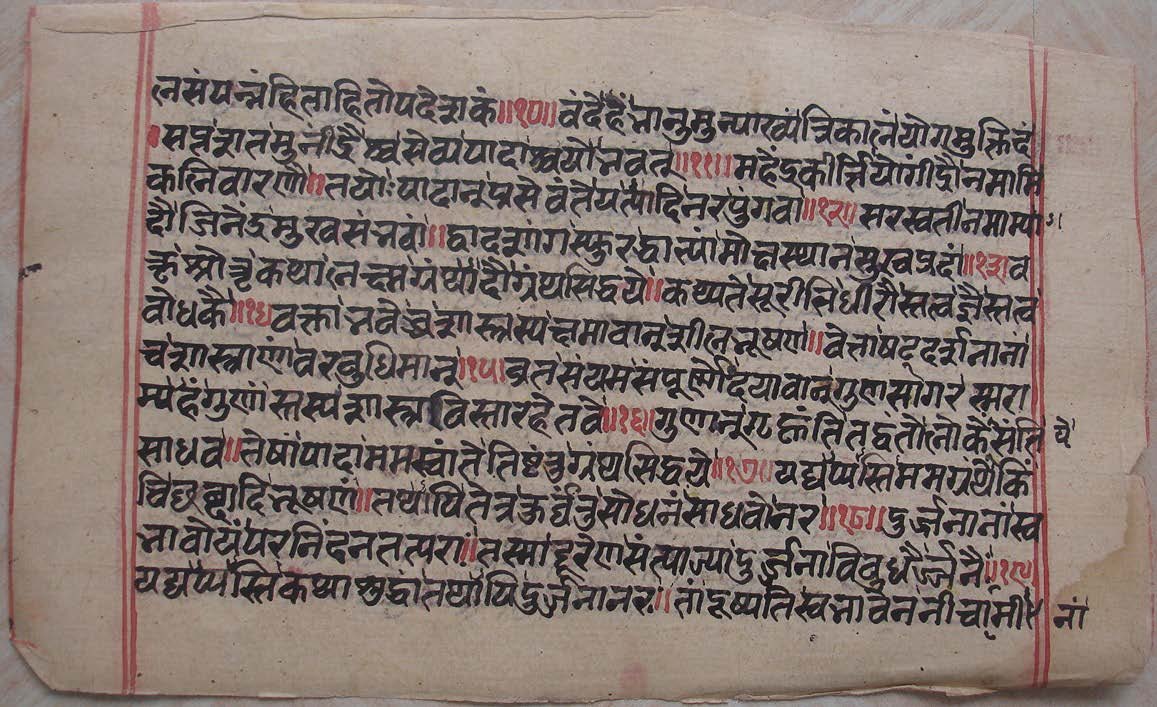 नसंपन्नंहिताहितोपदेशकं॥१०॥वंदेहंभानुमुन्याख्यंत्रिकालंयोगमुक्तिदं
॥सप्तशतमुनींद्रैश्चसेव्यपादाश्चयोभवत्॥११॥महेंद्रकीर्त्तियोगींद्रौनमामि
कनिवारणौ॥तयोःपादानुप्रसेवंतेयत्यादिनरपुंगवा॥१२॥सरस्वतीनमाम्या
दौजिनेंद्रमुखसंभवां॥द्वादशांगस्फुरद्वाण्यांमोक्षस्थानसुखप्रदां॥१३॥व
क्तृश्रोतृकथानेक्षग्रंथादौग्रंथसिद्धये॥कथ्यतेसूरीभिर्धीरैस्तत्वज्ञैस्तत्व
बोधकै॥१४वक्ताभवेच्चशास्त्रस्यक्षमावान्शीलभूषण॥वेत्ताषट्दर्शनानां
चशास्त्राणांवरबुधिमान्॥१५॥व्रतसंयमसंपूर्णोदयावान्गुणसागरस्मरा
म्यहंगुणांस्तस्यशास्त्रविस्तारहेतवे॥१६॥गुणान्गृह्णंतितद्वतोलोकेसंतिये
साधव॥तेषांपादाममस्वांतेतिष्टंतुग्रंथसिद्धये॥१७॥यद्यप्यस्तिममग्रंथेकिं
चिछब्दादिभूषणं॥तथापितत्रकुर्वंतुसोधनंसाधवोनर॥१८॥दुर्ज्जनानांस्व
भावोयंपरनिंदनतत्परा॥तस्माद्दूरेणसंत्याज्यादुर्ज्जनाविबुधैर्ज्जनै॥१९॥
यद्यप्यस्तिकथाशुद्धातथापिदुर्ज्जनानर॥तांदूष्यतिस्वभावेननीचा